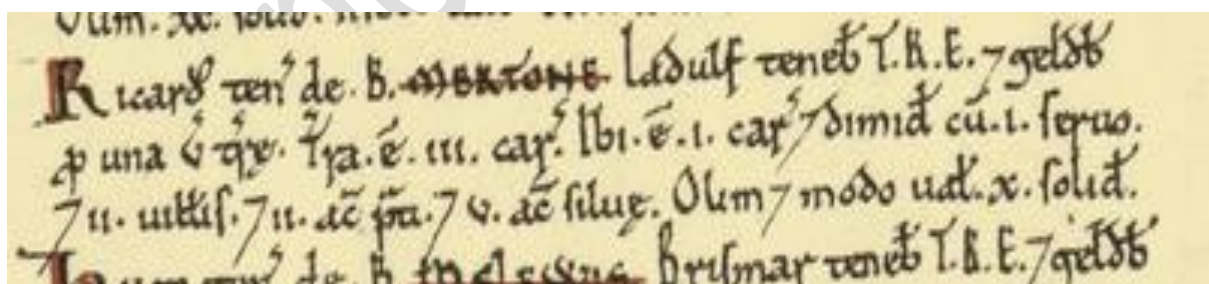 Olim. xx. solid. modo
Ricard' ten' de .B. MERTONE Ladulf teneb' T.R.E. ⁊ geldb'
p una v̄ træ. T'ra .ē. III. car'. Ibi .ē. I. car' ⁊ dimid' cū .I. seruo.
⁊ II. uillis. ⁊ II. ac̄ p̄ti. ⁊ V. ac̄ siluę. Olim ⁊ modo ual'. x. solid'.
ten' de .B. Brismar teneb' T.R.E. ⁊ geldb'